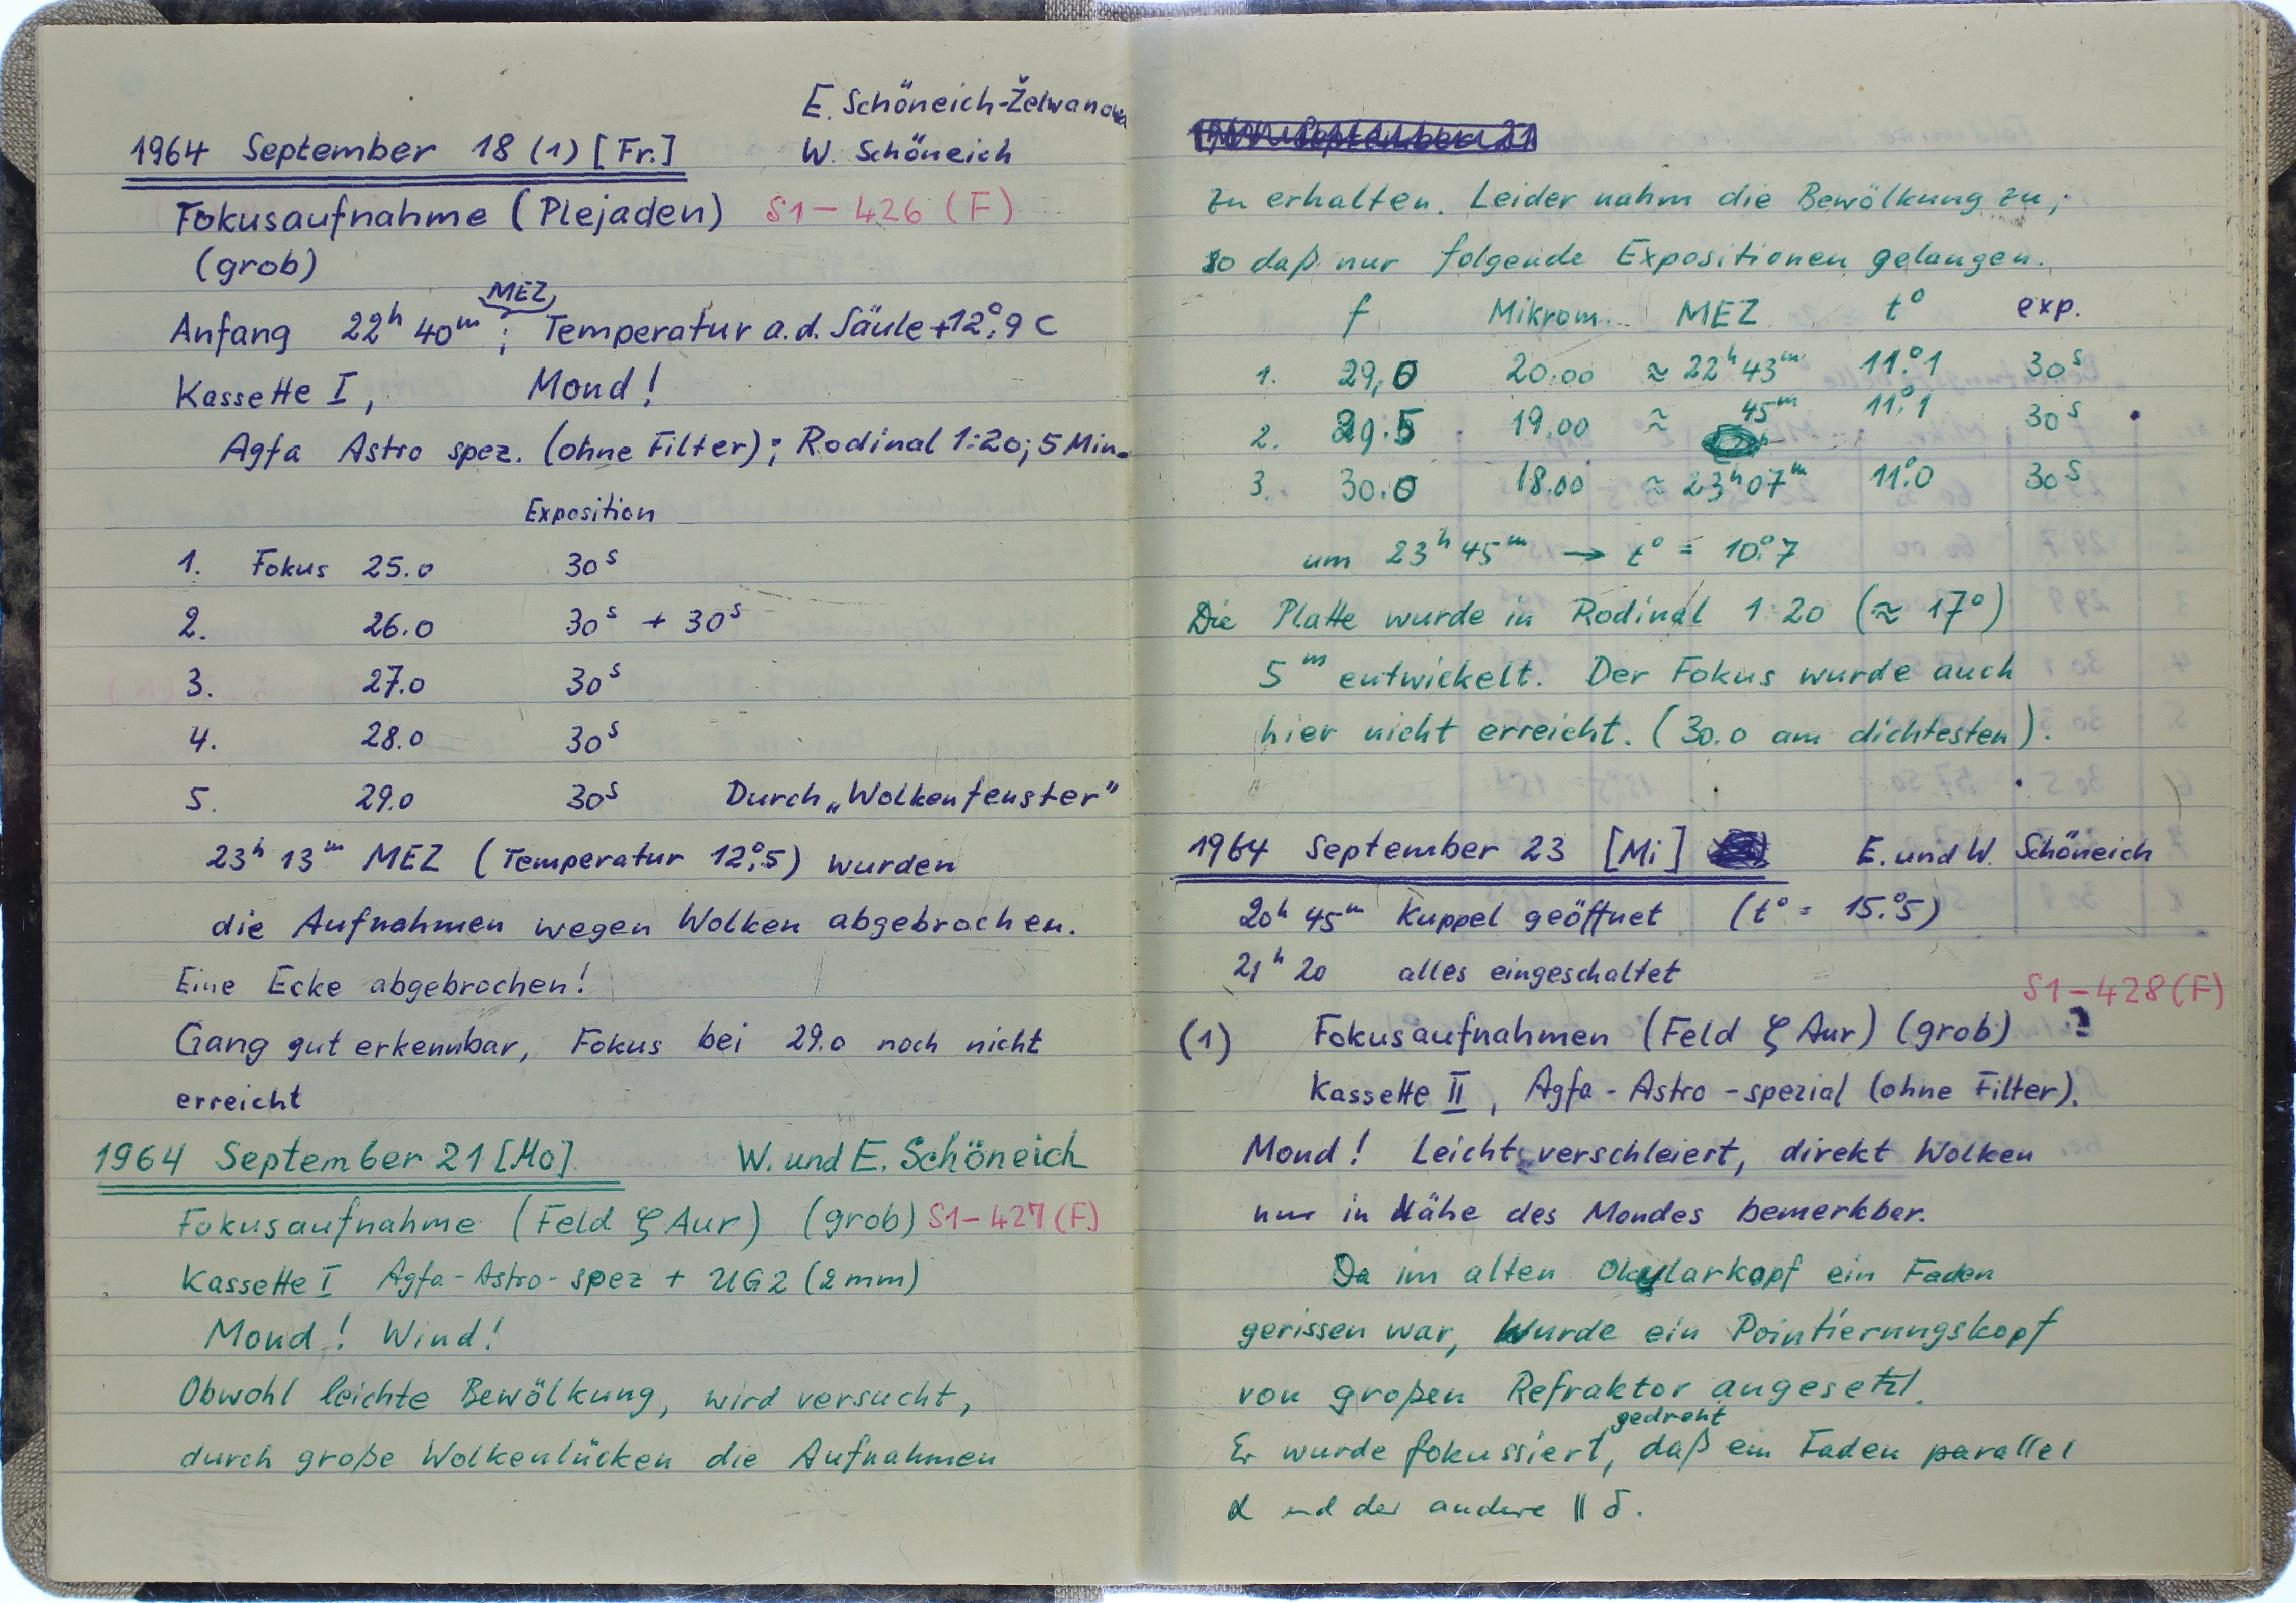 E. Schöneich-Želwanowa
1964 September 18 (1) [Fr.] W. Schöneich
Fokusaufnahme (Plejaden) S1-426 (F)
(grob)
MEZ
Anfang 22h 40m ; Temperatur a.d. Säule +12°,9 C
Kassette I, Mond!
Agfa Astro spez. (ohne Filter); Rodinal 1:20; 5 Min.
Exposition
1. Fokus 25.0 30s
2. 26.0 30s + 30s
3. 27.0 30s
4. 28.0 30s
5. 29.0 30s Durch „Wolkenfenster"
23h 13m MEZ (Temperatur 12°,5) wurden
die Aufnahmen wegen Wolken abgebrochen.
Eine Ecke abgebrochen!
Gang gut erkennbar, Fokus bei 29.0 noch nicht
erreicht
1964 September 21 [Mo] W. und E. Schöneich
Fokusaufnahme (Feld ζ Aur) (grob) S1-427 (F)
Kassette I Agfa-Astro-spez + UG2 (2mm)
Mond! Wind!
Obwohl leichte Bewölkung, wird versucht,
durch große Wolkenlücken die Aufnahmen
1964 September 21
zu erhalten. Leider nahm die Bewölkung zu,
so daß nur folgende Expositionen gelangen.
f Mikrom. MEZ t° exp.
1. 29,0 20.00 ≈ 22h 43m 11°.1 30s
2. 29.5 19.00 ≈ 45m 11°.1 30s
3. 30.0 18.00 ≈ 23h 07m 11°.0 30s
um 23h 45m → t° = 10°.7
Die Platte wurde in Rodinal 1:20 (≈ 17°)
5m entwickelt. Der Fokus wurde auch
hier nicht erreicht. (30.0 am dichtesten).
1964 September 23 [Mi] E. und W. Schöneich
20h 45m Kuppel geöffnet (t° = 15.°5)
21h 20 alles eingeschaltet
S1-428 (F)
(1) Fokusaufnahmen (Feld ζ Aur) (grob) ?
Kassette II, Agfa-Astro-spezial (ohne Filter).
Mond! Leicht verschleiert, direkt Wolken
nur in Nähe des Mondes bemerkbar.
Da im alten Okularkopf ein Faden
gerissen war, wurde ein Pointierungskopf
von großen Refraktor angesetzt.
gedreht
Er wurde fokussiert, daß ein Faden parallel
α und der andere || δ.